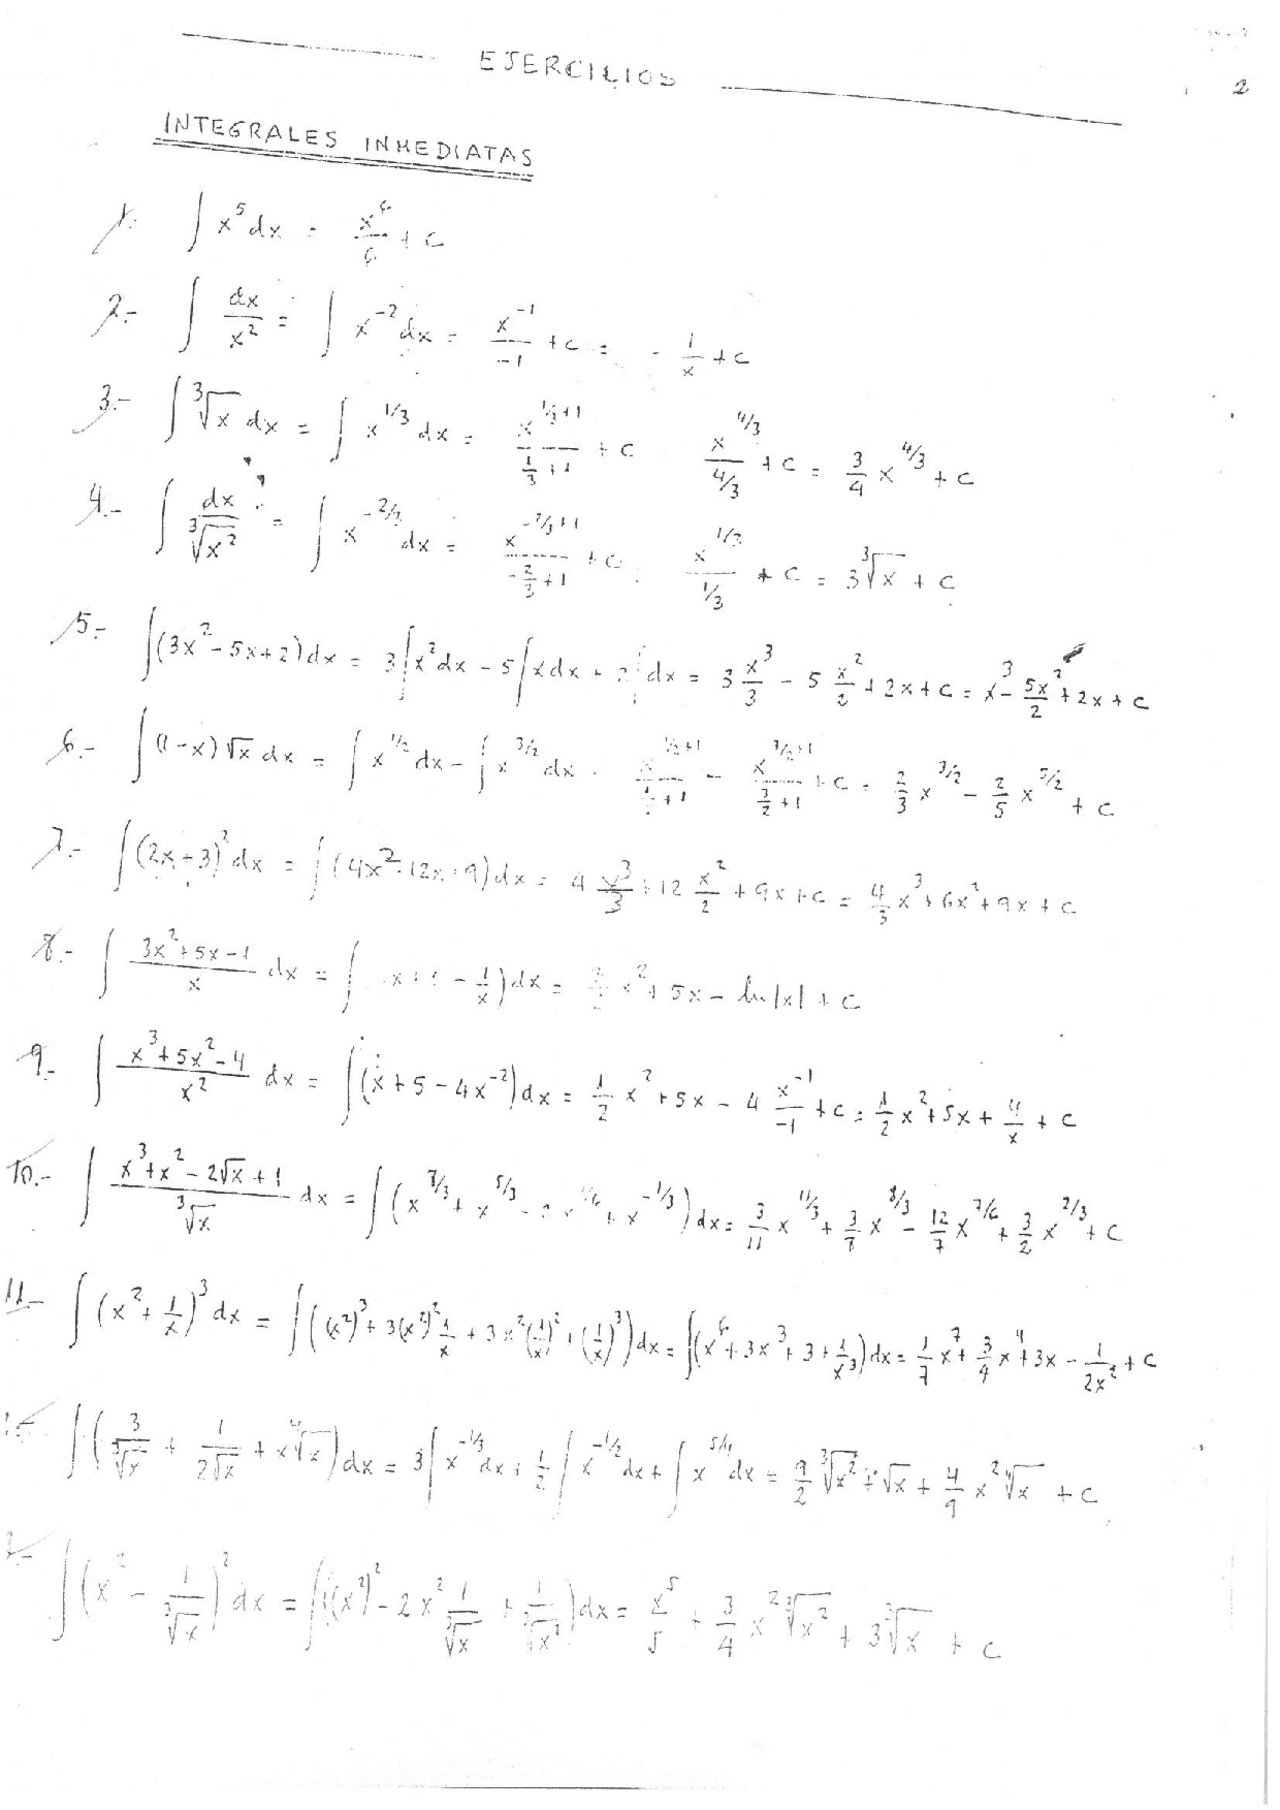 EJERCICIOS
2
INTEGRALES INMEDIATAS
1.- ∫ x⁵ dx = x⁶/6 + C
2.- ∫ dx/x² = ∫ x⁻² dx = x⁻¹/-1 + C = - 1/x + C
3.- ∫ ∛x dx = ∫ x^(1/3) dx = x^(1/3+1)/(1/3+1) + C x^(4/3)/(4/3) + C = 3/4 x^(4/3) + C
4.- ∫ dx/∛(x²) = ∫ x^(-2/3) dx = x^(-2/3+1)/(-2/3+1) + C x^(1/3)/(1/3) + C = 3∛x + C
5.- ∫(3x² - 5x + 2)dx = 3∫x²dx - 5∫xdx + 2∫dx = 3 x³/3 - 5 x²/2 + 2x + C = x³ - 5x²/2 + 2x + C
6.- ∫(1-x)√x dx = ∫ x^(1/2) dx - ∫ x^(3/2) dx = x^(1/2+1)/(1/2+1) - x^(3/2+1)/(3/2+1) + C = 2/3 x^(3/2) - 2/5 x^(5/2) + C
7.- ∫(2x+3)² dx = ∫(4x²+12x+9)dx = 4 x³/3 + 12 x²/2 + 9x + C = 4/3 x³ + 6x² + 9x + C
8.- ∫ (3x²+5x-1)/x dx = ∫ x + - 1/x)dx = x² + 5x - ln|x| + C
9.- ∫ (x³+5x²-4)/x² dx = ∫(x + 5 - 4x⁻²)dx = 1/2 x² + 5x - 4 x⁻¹/-1 + C = 1/2 x² + 5x + 4/x + C
10.- ∫ (x³+x²-2√x+1)/∛x dx = ∫(x^(8/3) + x^(5/3) - 2x^(1/6) + x^(-1/3))dx = 3/11 x^(11/3) + 3/8 x^(8/3) - 12/7 x^(7/6) + 3/2 x^(2/3) + C
11- ∫(x² + 1/x)³ dx = ∫((x²)³ + 3(x²)² 1/x + 3x²(1/x)² + (1/x)³)dx = ∫(x⁶ + 3x³ + 3 + 1/x³)dx = 1/7 x⁷ + 3/4 x⁴ + 3x - 1/2x² + C
∫(3/∛x + 1/2√x + x∜x)dx = 3∫x^(-1/3)dx + 1/2 ∫x^(-1/2)dx + ∫x^(5/4)dx = 9/2 ∛(x²) + √x + 4/9 x² ∜x + C
∫(x² - 1/∛x)² dx = ∫((x²)² - 2x² 1/∛x + 1/∛(x²))dx = x⁵/5 + 3/4 x² ∛(x²) + 3∛x + C